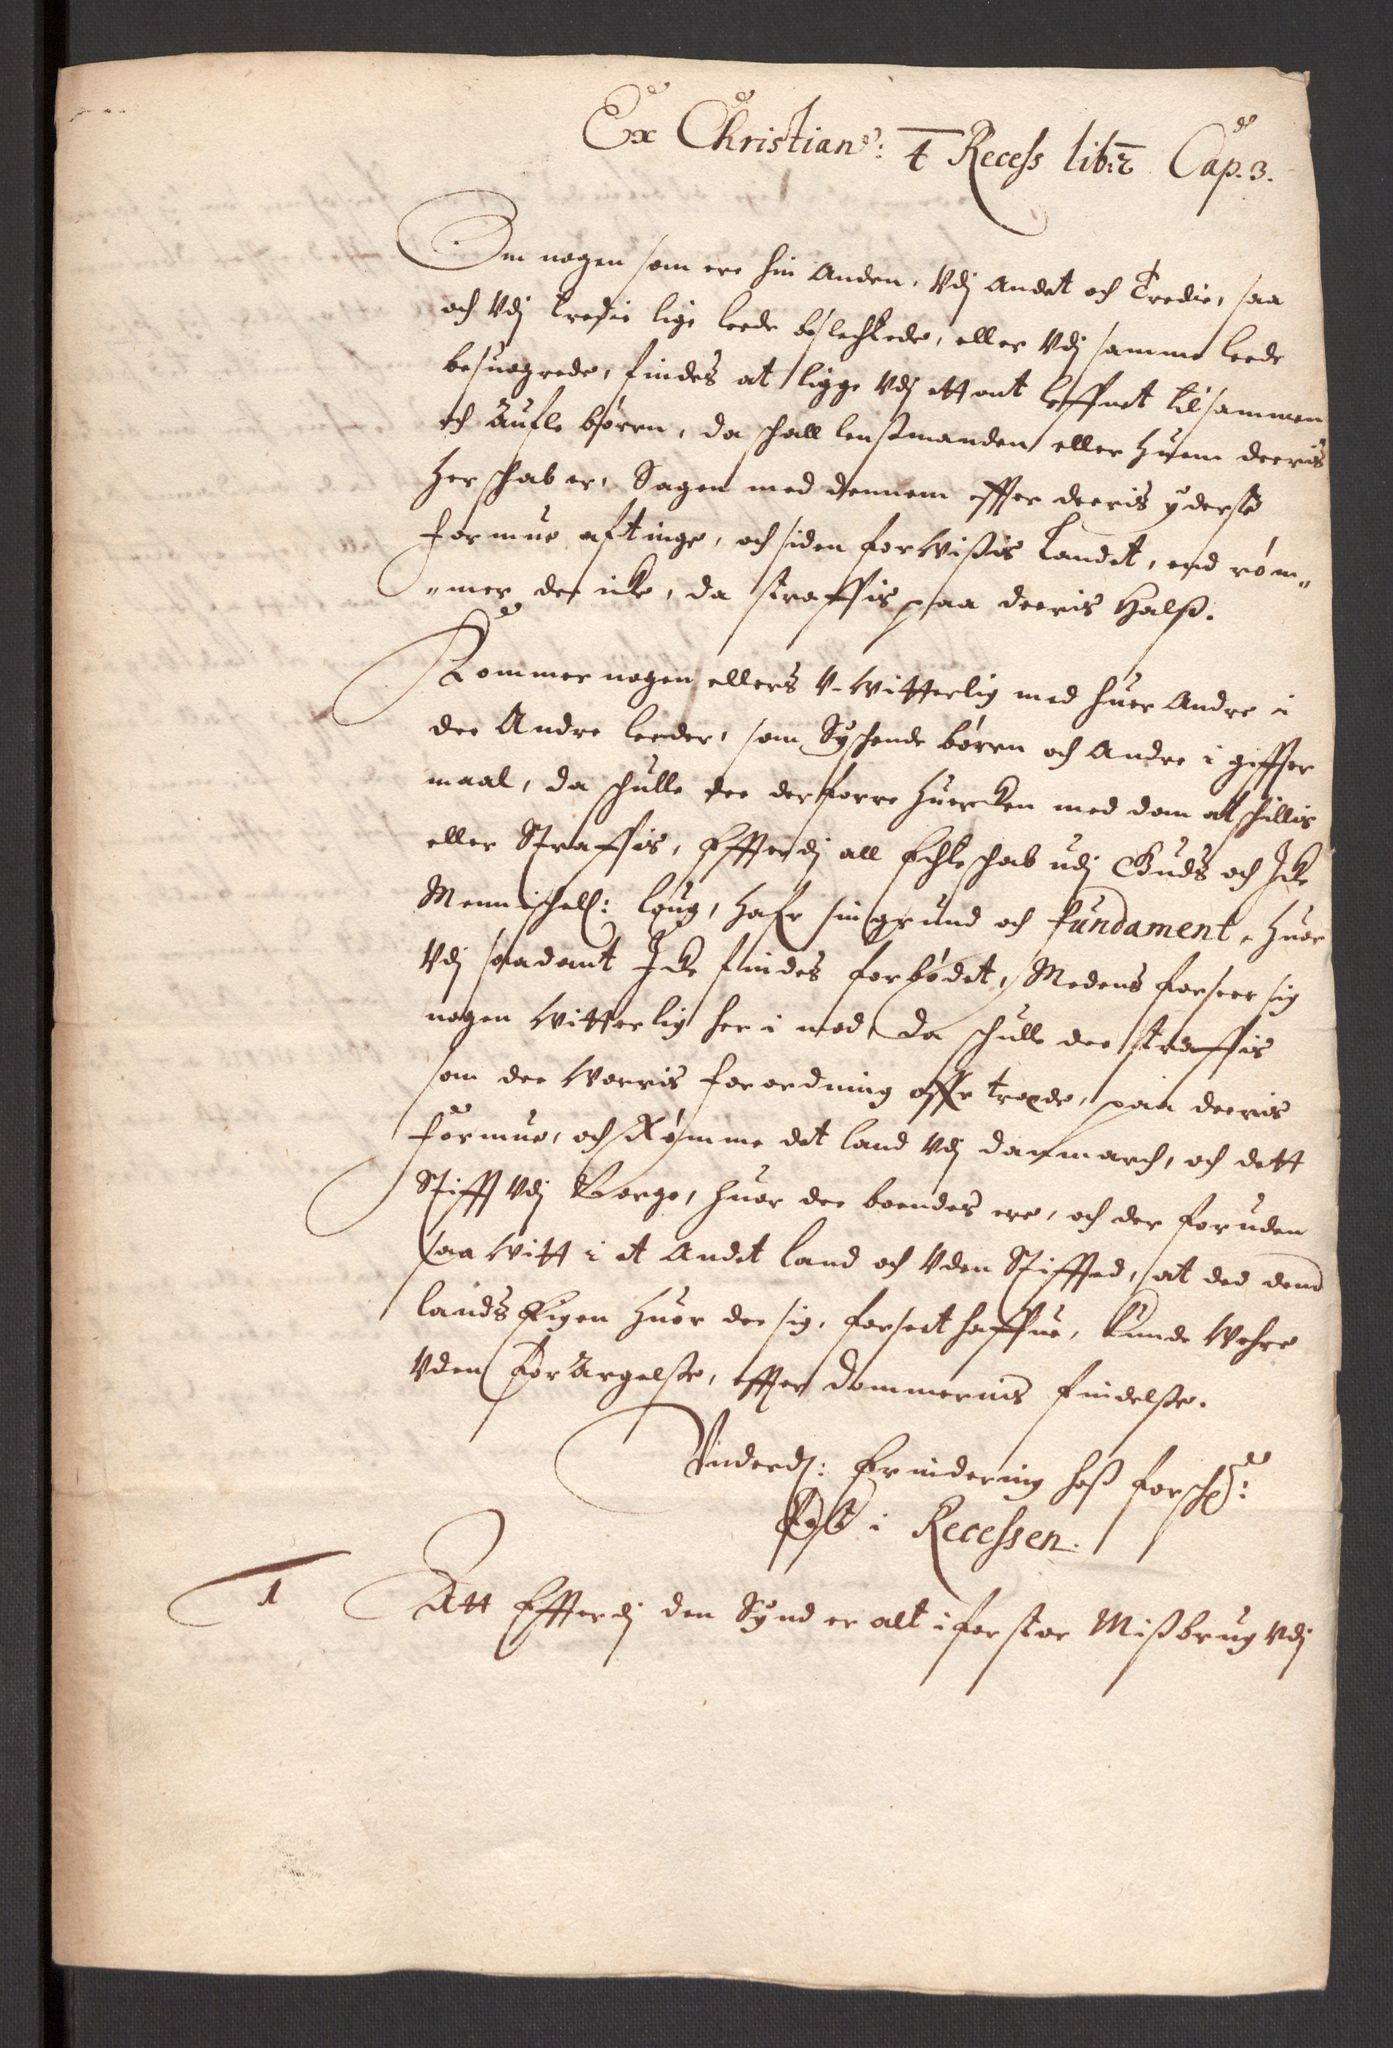 Ex Christian: 4 Recess lib: 2 Cap. 3.
Om nogen som ere hin Anden, Vdj Andet och Tredie, saa
och Vdj Tredie lige leede beslechtede, eller Vdj samme leede
besuogrede, findes at ligge Vdj ett ont leffnet tilsammen
och aufle børrn, da schall lensmanden eller huem deeris
herschab er, Sagen med dennem effter deeris yderste
formue aftinge, och siden forwissis Landet, end røm„
„mer de icke, da straffis paa deeris Halss.
Kommer nogen ellers V-witterlig med huer Andre i
dee Andre leeder, som Syschende børrn och Andre i giffter
maal, da schulle dee derforre huercken med dom at schillis
eller Straffis, Efftterdj all Echteschab udj Guds och Icke
Menneschel: loug, hafr sin grund och fundament, huor
Vdj saadant Icke findes forbødet, Medens forseer sig
nogen witterlig her i mod, da schulle dee straffis
som dee worris forordning offr træde, paa deeris
formue, och Rømme det land Vdj danmarch, och dett
Stifft Vdj Norge, huor dee boendes ere, och der foruden
saa witt i et Andet land och Vden Stifftted, at ded dend
lands Eigen huor dee sig, forseet haffue, kunde wehre
Vden forargelsse, effter dommernis findelsse.
Vnderd: Erindering hoss forsch:
Post i Recessen.
1 Att Efftterdj den Synd er alt i for stor Missbrug Vdj